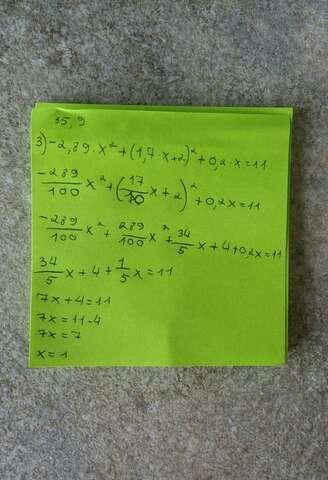 35,9
3) -2,89·x² + (1,7·x+2)² + 0,2·x = 11
-289/100 x² + (17/10 x + 2)² + 0,2x = 11
-289/100 x² + 289/100 x² + 34/5 x + 4 + 0,2x = 11
34/5 x + 4 + 1/5 x = 11
7x + 4 = 11
7x = 11-4
7x = 7
x = 1